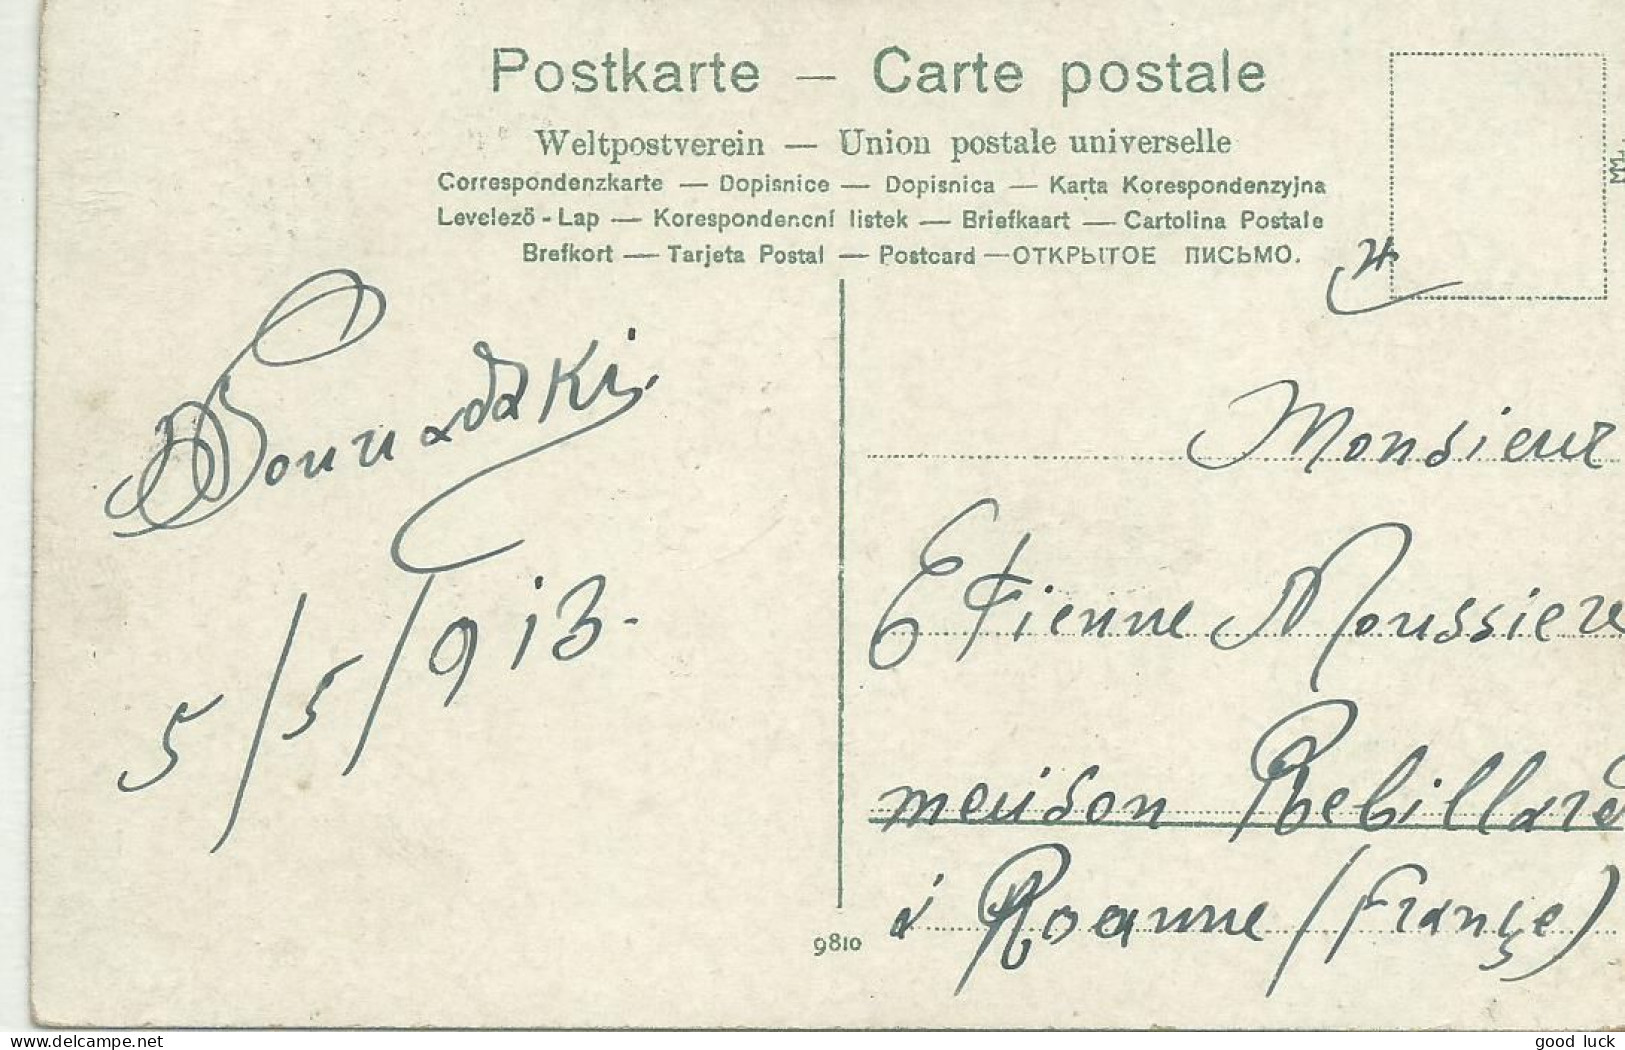 Postkarte — Carte postale
Weltpostverein — Union postale universelle
Correspondenzkarte — Dopisnice — Dopisnica — Karta Korespondenzyjna
Levelezö - Lap — Korespondencní listek — Briefkaart — Cartolina Postale
Brefkort — Tarjeta Postal — Postcard — ОТКРЫТОЕ ПИСЬМО.
5/5/913.
Monsieur
Etienne Moussiere
meison Rebillard
à Roanne (Françe)
9810
www.delcampe.net
good_luck